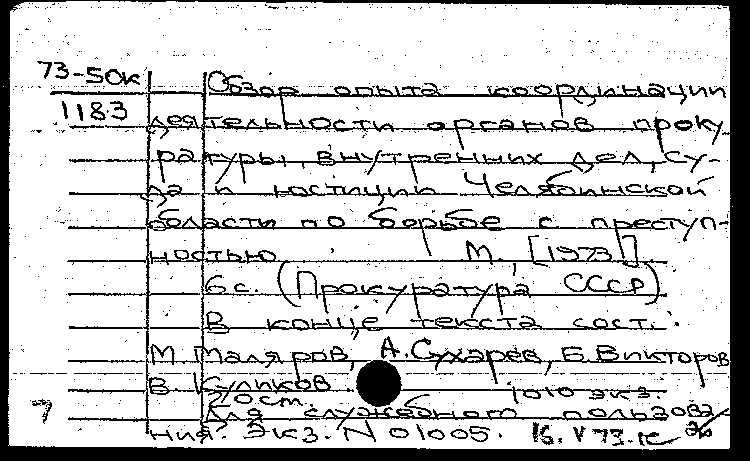 73-50к
1183
Обзор опыта координации
деятельности органов проку
ратуры, внутренних дел, су-
да и юстиции Челябинской
области по борьбе с преступ-
ностью. М., [1973].
6 с. (Прокуратура СССР)
В конце текста сост.:
М. Маляров, А. Сухарев, Б. Викторов
В. Куликов.
20 ст. 1010 экз.
Для служебного пользова
7
ния. Экз. N 01005. 16.V 73.